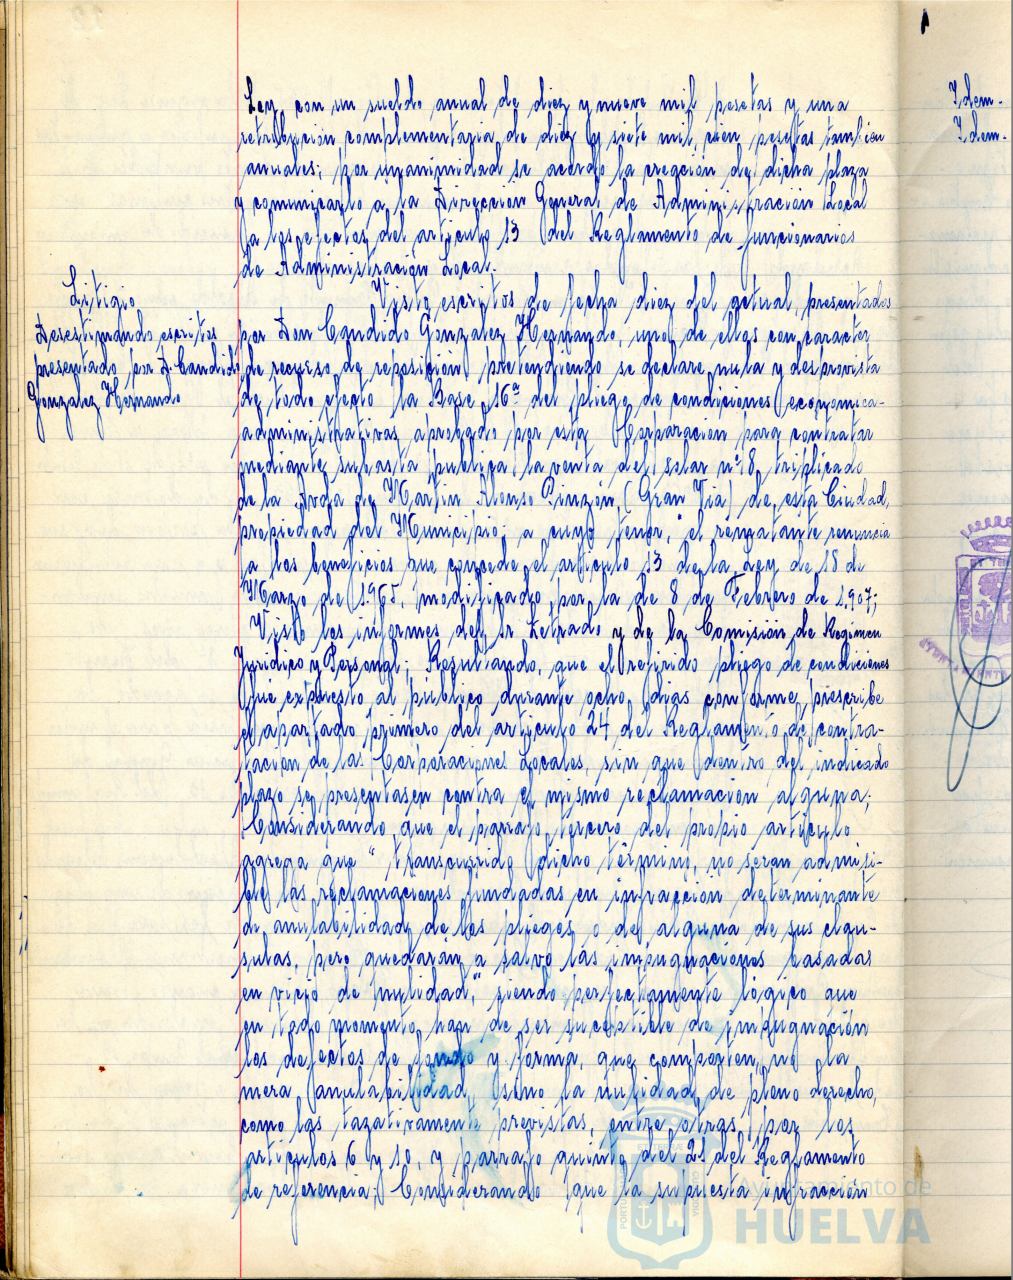 Ley, con un sueldo anual de diez y nueve mil pesetas y una
retribución complementaria de diez y siete mil cien pesetas tambien
anuales; por unanimidad se acordó la creación de dicha plaza
y comunicarlo a la Dirección General de Administración Local
a los efectos del articulo 13 del Reglamento de funcionarios
de Administración Local.
Litigio
Desestimando escritos
presentado por D. Candido
Gonzalez Hernando
Visto escritos de fecha diez del actual, presentados
por Don Candido Gonzalez Hernando, uno de ellos con caracter
de recurso de reposición pretendiendo se declare nula y desprovista
de todo efecto la Base 16ª del pliego de condiciones económica-
administrativas aprobado por esta Corporación para contratar
mediante subasta publica la venta del solar nº 18 triplicado
de la Avda de Martin Alonso Pinzón (Gran Via) de esta Ciudad,
propiedad del Municipio; a cuyo tenor, "el rematante renuncia
a los beneficios que concede el articulo 13 de la Ley de 18 de
Marzo de 1.965, modificado por la de 8 de Febrero de 1.907;
Visto los informes del Sr Letrado y de la Comisión de Regimen
Juridico y Personal; Resultando, que el referido pliego de condiciones
fue expuesto al público durante ocho dias conforme prescribe
el apartado primero del articulo 24 del Reglamento de contra-
tación de las Corporaciones Locales, sin que dentro del indicado
plazo se presentasen contra el mismo reclamación alguna;
Considerando que el parrafo tercero del propio articulo
agrega que "transcurrido dicho término, no seran admisi-
bles las reclamaciones fundadas en infracción determinante
de anulabilidad de los pliegos o de alguna de sus clau-
sulas, pero quedarán a salvo las impugnaciones basadas
en vicio de nulidad," siendo perfectamente lógico que
en todo momento han de ser suceptible de impugnación
los defectos de fondo y forma, que comporten, no la
mera anulabilidad, sino la nulidad de pleno derecho,
como las tazativamente previstas, entre otras, por los
articulos 6 y 10, y parrafo quinto del 21 del Reglamento
de referencia; Considerando que la supuesta infracción
Idem.
Idem.
Ayuntamiento de
HUELVA